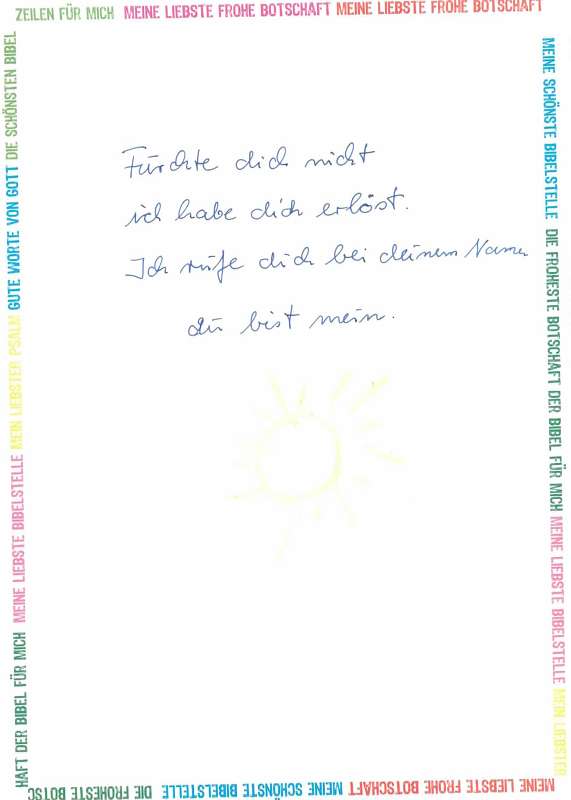 ZEILEN FÜR MICH MEINE LIEBSTE FROHE BOTSCHAFT MEINE LIEBSTE FROHE BOTSCHAFT
MEINE SCHÖNSTE BIBELSTELLE DIE FROHESTE BOTSCHAFT DER BIBEL FÜR MICH MEINE LIEBSTE BIBELSTELLE MEIN LIEBSTER
Fürchte dich nicht
ich habe dich erlöst.
Ich rufe dich bei deinem Namen
du bist mein.
MEINE LIEBSTE FROHE BOTSCHAFT MEINE SCHÖNSTE BIBELSTELLE DIE FROHESTE BOTSC
HAFT DER BIBEL FÜR MICH MEINE LIEBSTE BIBELSTELLE MEIN LIEBSTER PSALM GUTE WORTE VON GOTT DIE SCHÖNSTEN BIBEL